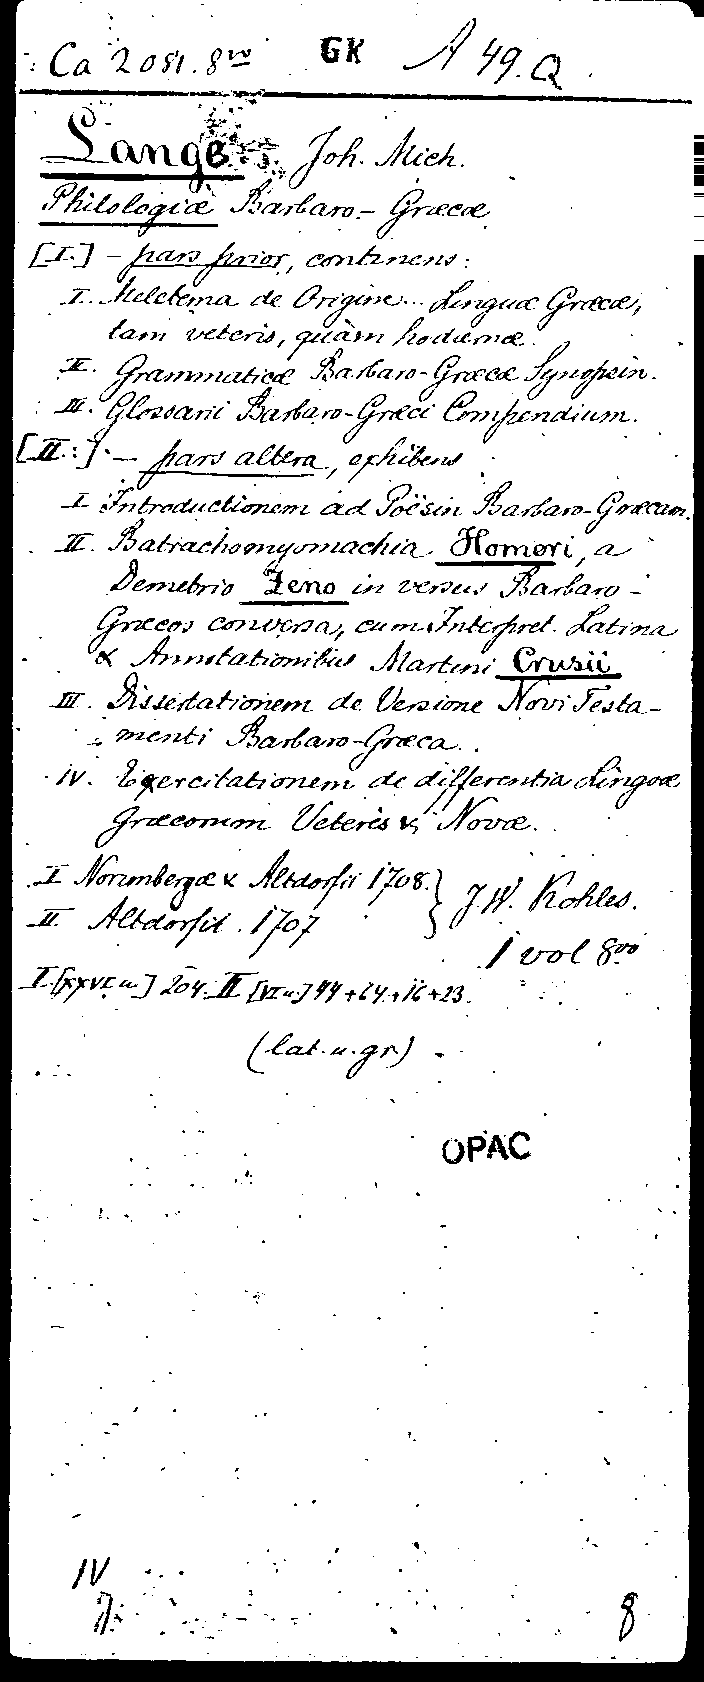 Ca 2081.8vo GK A 49.Q.
Lange, Joh. Mich.
Philologiæ Barbaro-Græcæ
[I.] - pars prior, continens:
I. Meletema de Origine... Linguæ Græcæ,
tam veteris, quàm hodiernæ.
II. Grammaticæ Barbaro-Græcæ Synopsin.
III. Glossarii Barbaro-Græci Compendium.
[II.] - pars altera, exhibens
I Introductionem ad Poësin Barbaro-Græcam.
II. Batrachomyomachia Homeri, a
Demetrio Zeno in versus Barbaro-
Græcos conversa, cum Interpret. Latina
& Annotationibus Martini Crusii
III. Dissertationem de Versione Novi Testa-
menti Barbaro-Græca.
IV. Exercitationem de differentia Linguæ
Græcorum Veteris & Novæ.
I Norimbergæ & Altdorfii 1708. } J.W. Kohles.
II. Altdorfii. 1707
1 vol 8vo
I [XXVI u.] 204. II [VI u.] 44+64+16+23.
(lat. u. gr.)
OPAC
IV
7. 8